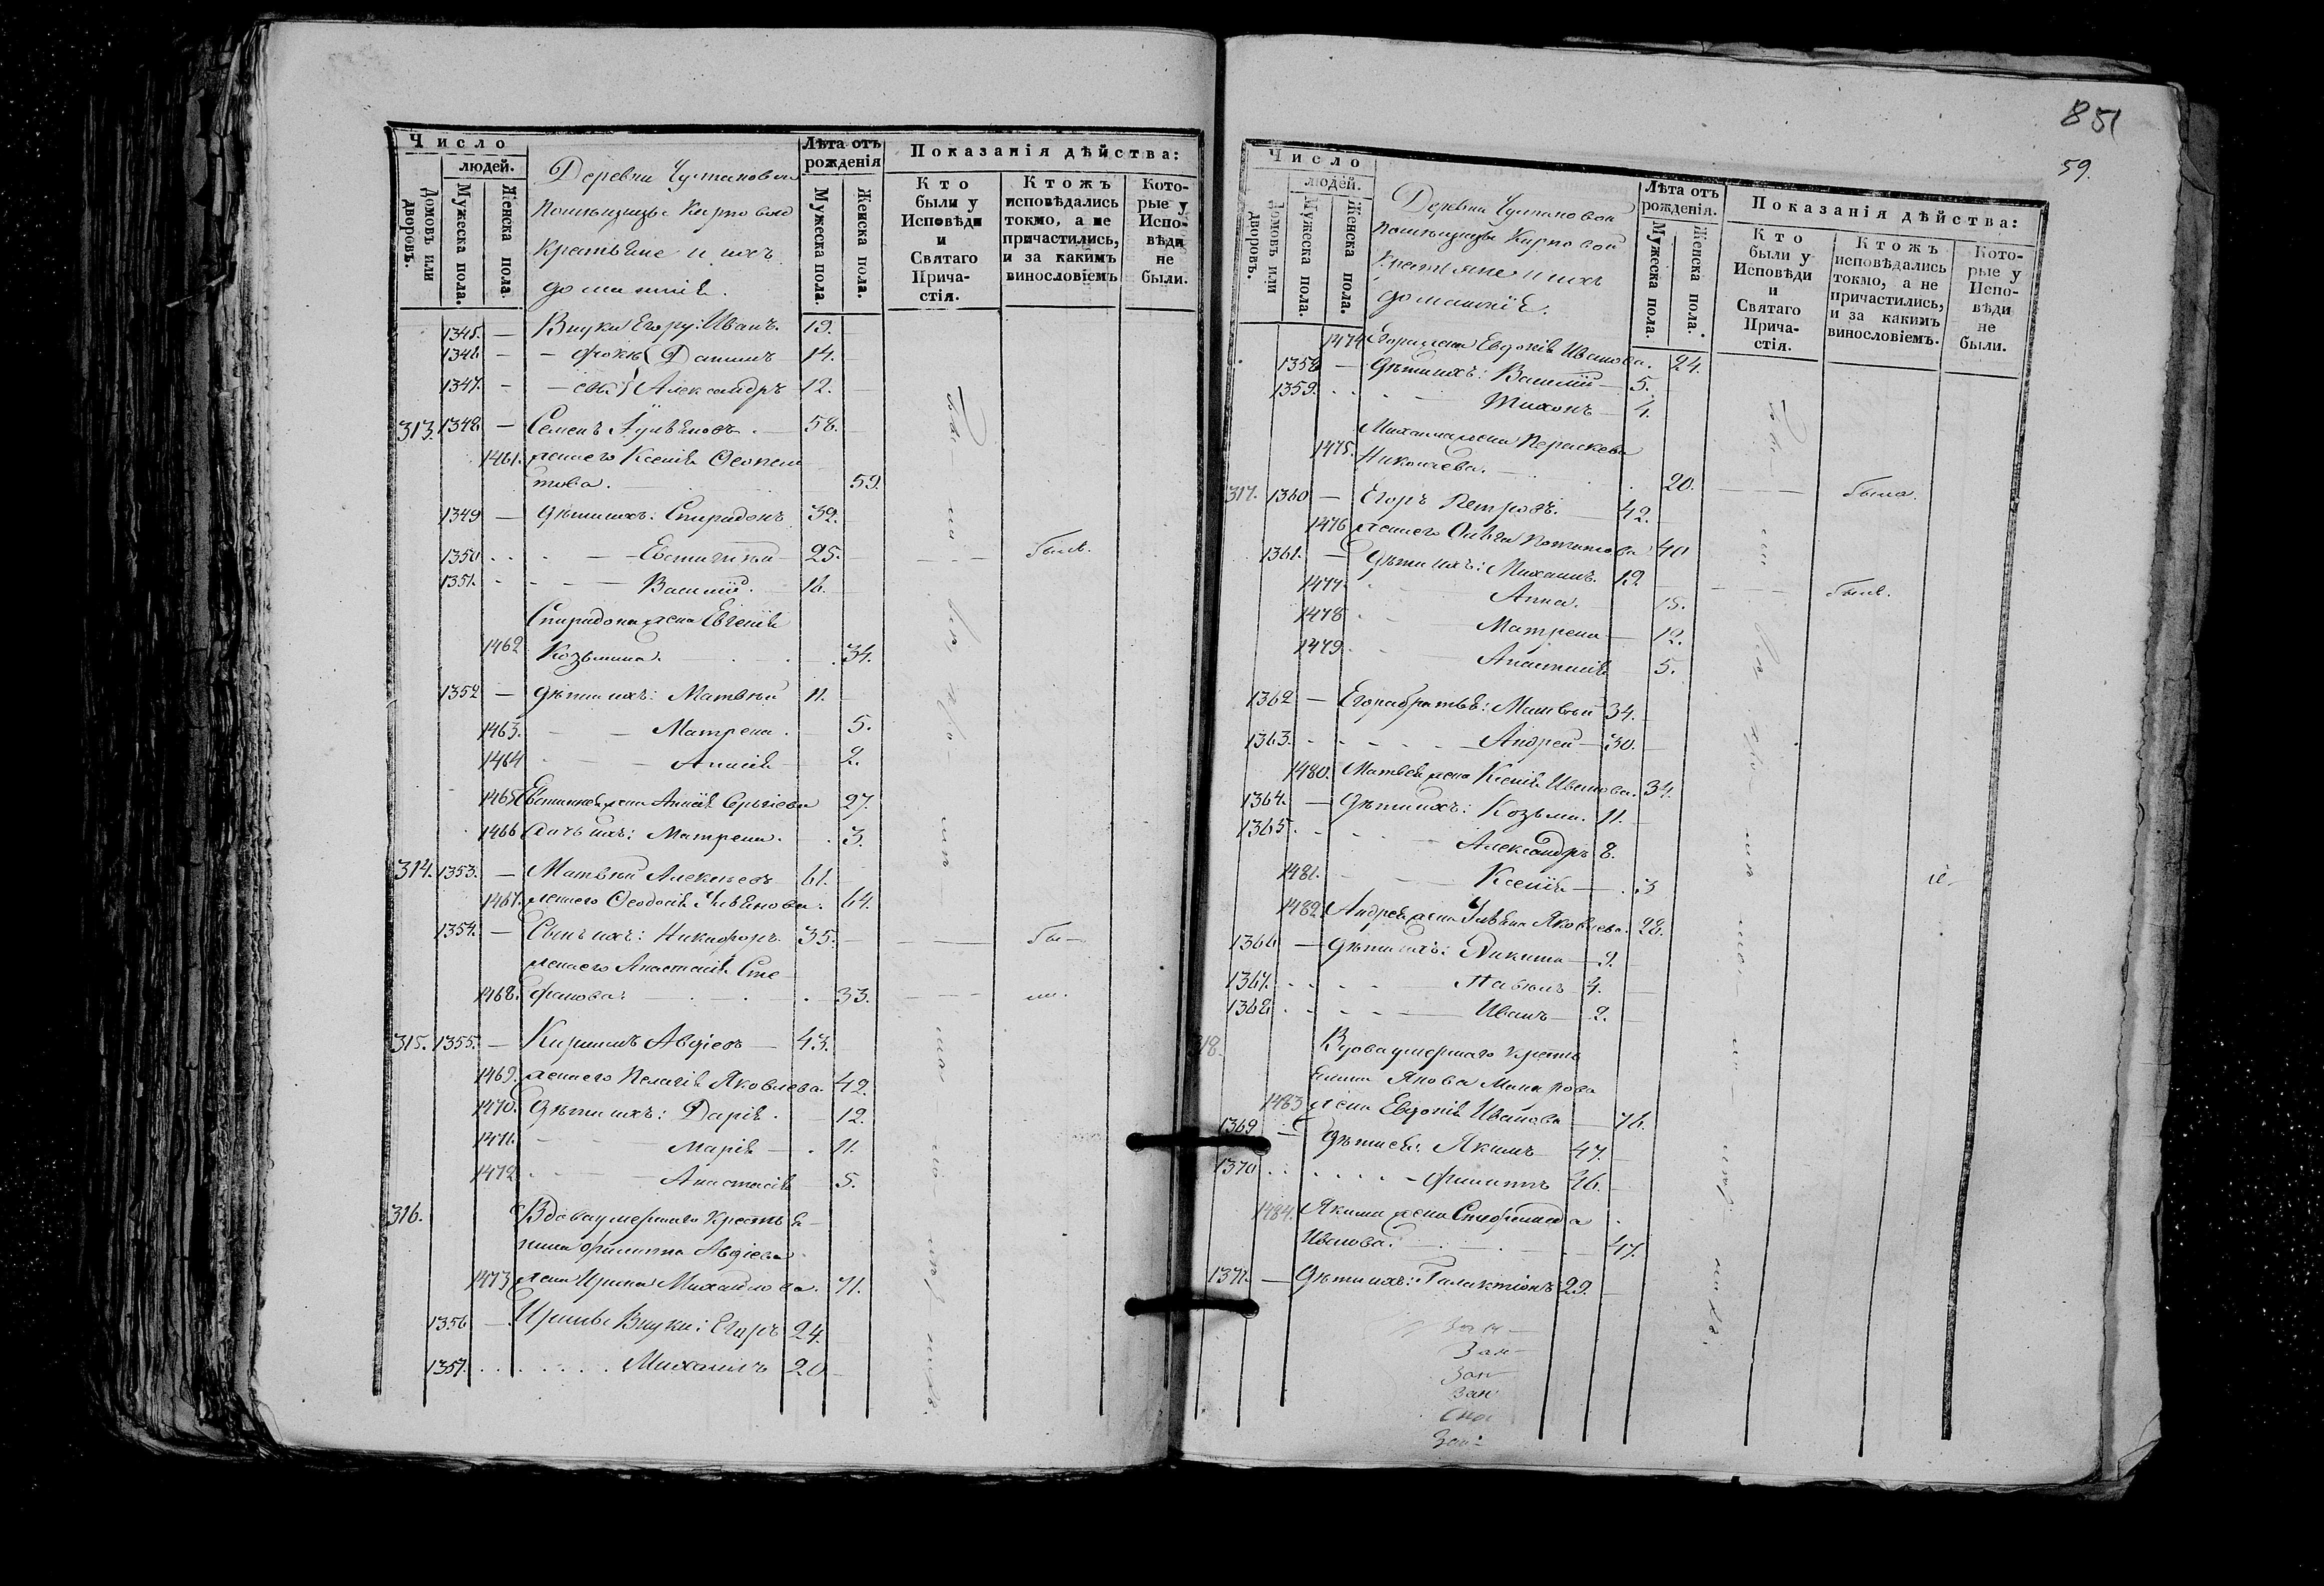 Число
людей.
Домовъ или дворовъ.
Мужеска пола.
Женска пола.
Деревни
помѣщицы Карповой
Крестьяне и ихъ
домашніе.
Лѣта отъ рожденія
Мужеска пола.
Женска пола.
Показанія дѣйства:
Кто были у Исповѣди и Святаго Прича-стія.
Ктожъ исповѣдались токмо, а не причастились, и за какимъ винословіемъ
Кото-рые у Испо-вѣди не были.
1345. — Внуки Егору: Иванъ. 19.
1346 — Данилъ 14.
1347. — Александръ 12.
313. 1348 — Семенъ 58.
1461. жена его Ксенія
59.
1349 — дѣти ихъ: Спиридонъ 39.
1350 Евстигней 25. былъ.
1351. Василій. 16.
Спиридона жена Евгенія
1462 Козьмина. 34.
1352 — дѣти ихъ: Матвѣй 11.
1463. Матрена. 5.
1464 Анисія 2.
1465 жена Анисія Сергіева 27.
1466 Дочь ихъ: Матрена. 3.
314. 1353. — Матвѣй Алексѣевъ 61.
1467. жена его Ѳеодосія Ульянова. 64.
1354. — Сынъ ихъ: Никифоръ. 35. бы—
жена его Анастасія Сте
1468. фанова. 33. ли.
315. 1355. — Кириллъ Авдіевъ 43.
1469. жена его Пелагія Яковлева. 42.
1470. Дѣти ихъ: Дарія. 12.
1471. Марія 11.
1472 Анастасія 5.
316. Вдова умершаго Крестья
нина Филиппа Авдіева
1473 жена Ирина Михайлова. 71.
1356 — Ирины Внуки: Егоръ 24.
1357. Михаилъ 20
851
59.
Число
людей.
Домовъ или дворовъ.
Мужеска пола.
Женска пола.
Деревни
помѣщицы Карповой
Крестьяне и ихъ
домашніе.
Лѣта отъ рожденія.
Мужеска пола.
Женска пола.
Показанія дѣйства:
Кто были у Исповѣди и Святаго Прича-стія.
Ктожъ исповѣдались токмо, а не причастились, и за какимъ винословіемъ.
Кото-рые у Испо-вѣди не были.
1474 Егора жена Евдокія Иванова. 24.
1358 — дѣти ихъ: Василій 5.
1359. Тихонъ 4.
Михаила жена Параскева
1475. Николаева. 20. была.
317. 1360 — Егоръ Петровъ. 42.
1476 жена его Ольга 40
1361. — Дѣти ихъ: Михаилъ. 19 былъ.
1477. Анна. 15.
1478 Матрена 12.
1479. Анастасія 5.
1362 — Егора братья: Матвѣй 34.
1363. Андрей 30.
1480. Матвея жена Ксенія Иванова. 34.
1364. — Дѣти ихъ: Козьма. 11.
1365. Александръ 8.
1481. Ксенія 3
1482. Андрея жена Ульяна Яковлева. 28.
1366 — дѣти ихъ: Никита 9.
1367. Павелъ 4.
1368 Иванъ 2.
318. Вдова умершаго Кресть
янина Якова Макарова
1483 жена Евдокія Иванова 76.
1369 — Дѣти ея: Якимъ 47.
1370 Филиппъ 26.
1484. Якима жена Степанида
Иванова. 47.
1371. — Дѣти ихъ: Галактіонъ 29.